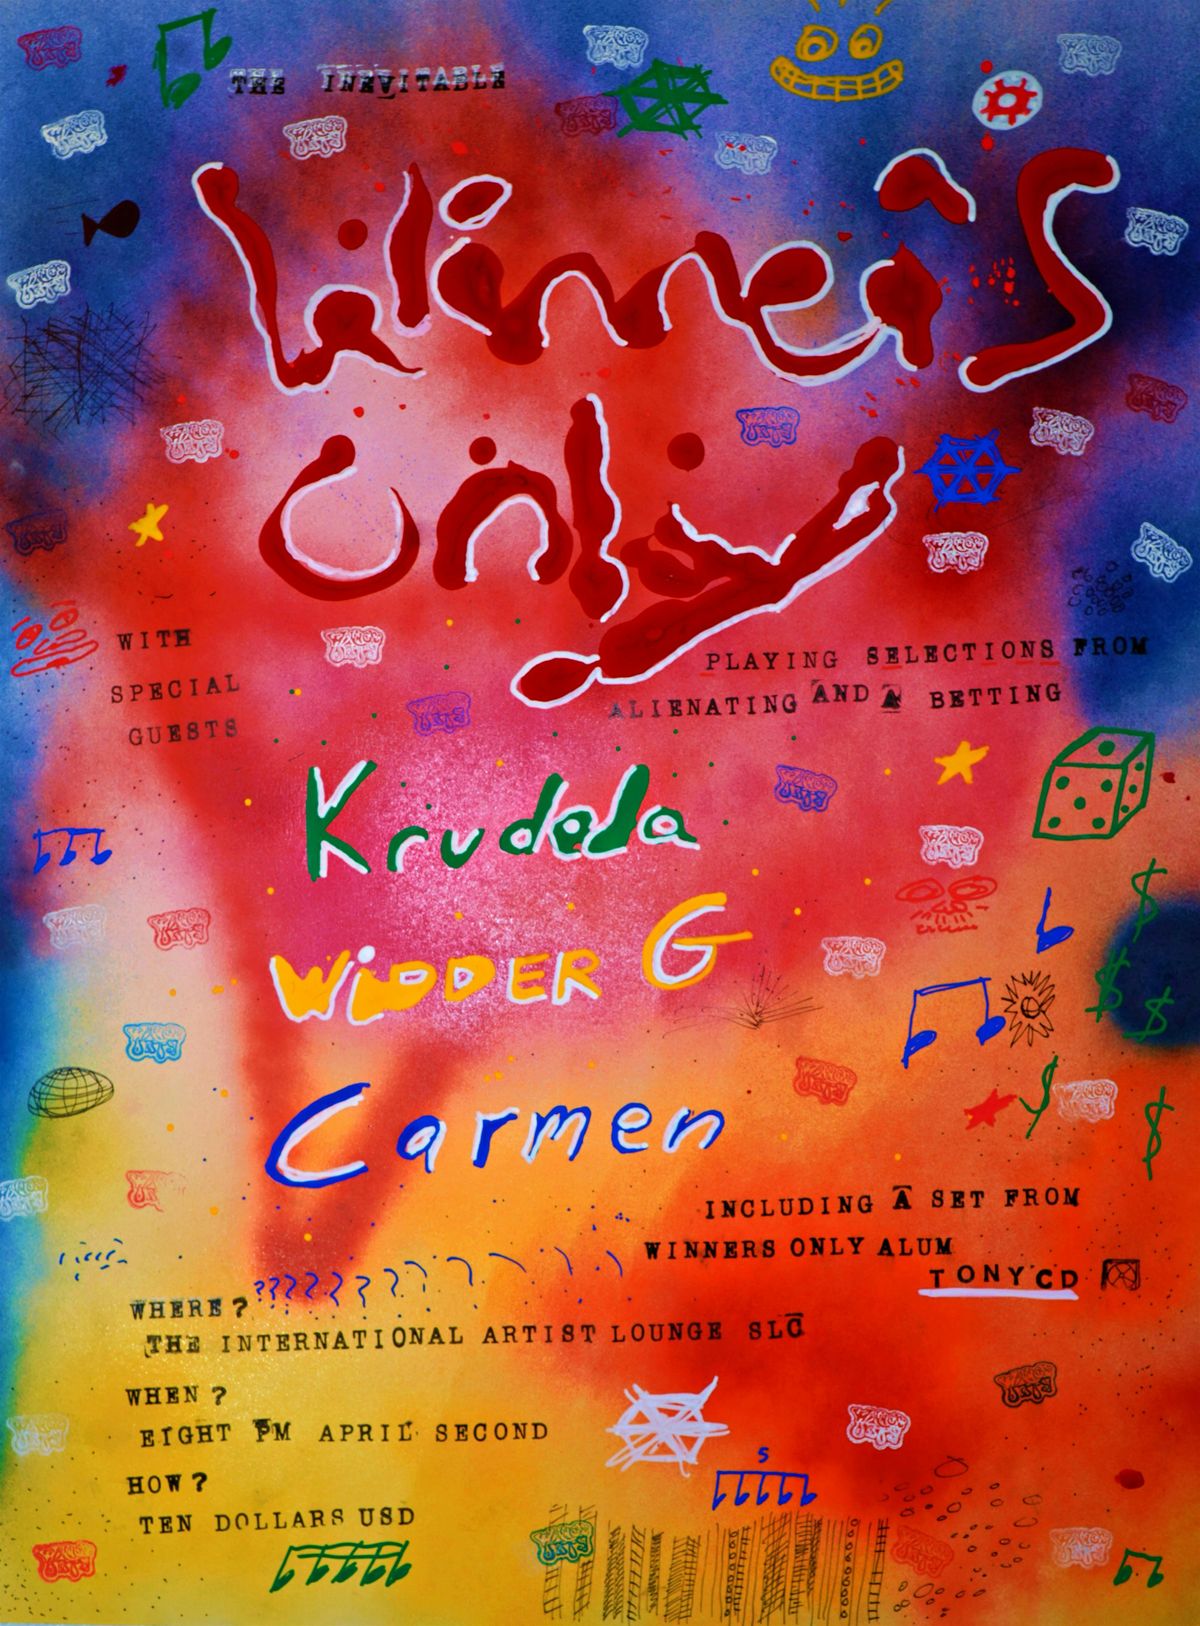 THE INEVITABLE
Winner's
Only
WITH
SPECIAL
GUESTS
PLAYING SELECTIONS FROM
ALIENATING AND A BETTING
Krudela
WiDDER G
Carmen
INCLUDING A SET FROM
WINNERS ONLY ALUM
TONY CD
WHERE?
THE INTERNATIONAL ARTIST LOUNGE SLC
WHEN?
EIGHT PM APRIL SECOND
HOW?
TEN DOLLARS USD
5